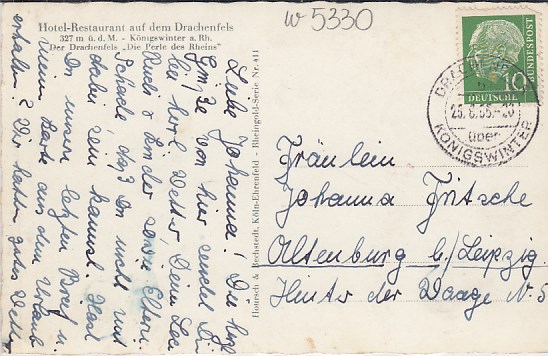 w 5330
Hotel-Restaurant auf dem Drachenfels
327 m ü. d. M. - Königswinter a. Rh.
Der Drachenfels „Die Perle des Rheins"
Liebe Johanna! Die herzl.
Grüße von hier sendet Dir
bei herrl. Wetter, Deine
Ruth & Günder sowie Eltern.
Schade daß Du nicht mit
dabei sein kannst. Hast
Du unsern letzten Brief u.
eine Karte aus dem Urlaub
erhalten? Wir hatten gutes Wetter
Hoursch & Bechstedt, Köln-Ehrenfeld - Rheingold-Serie Nr. 411
DEUTSCHE BUNDESPOST
10
25. 6. 55.-20
über
KÖNIGSWINTER
Fräulein
Johanna Fritsche
Altenburg b/Leipzig.
Hinter der Waage N. 5